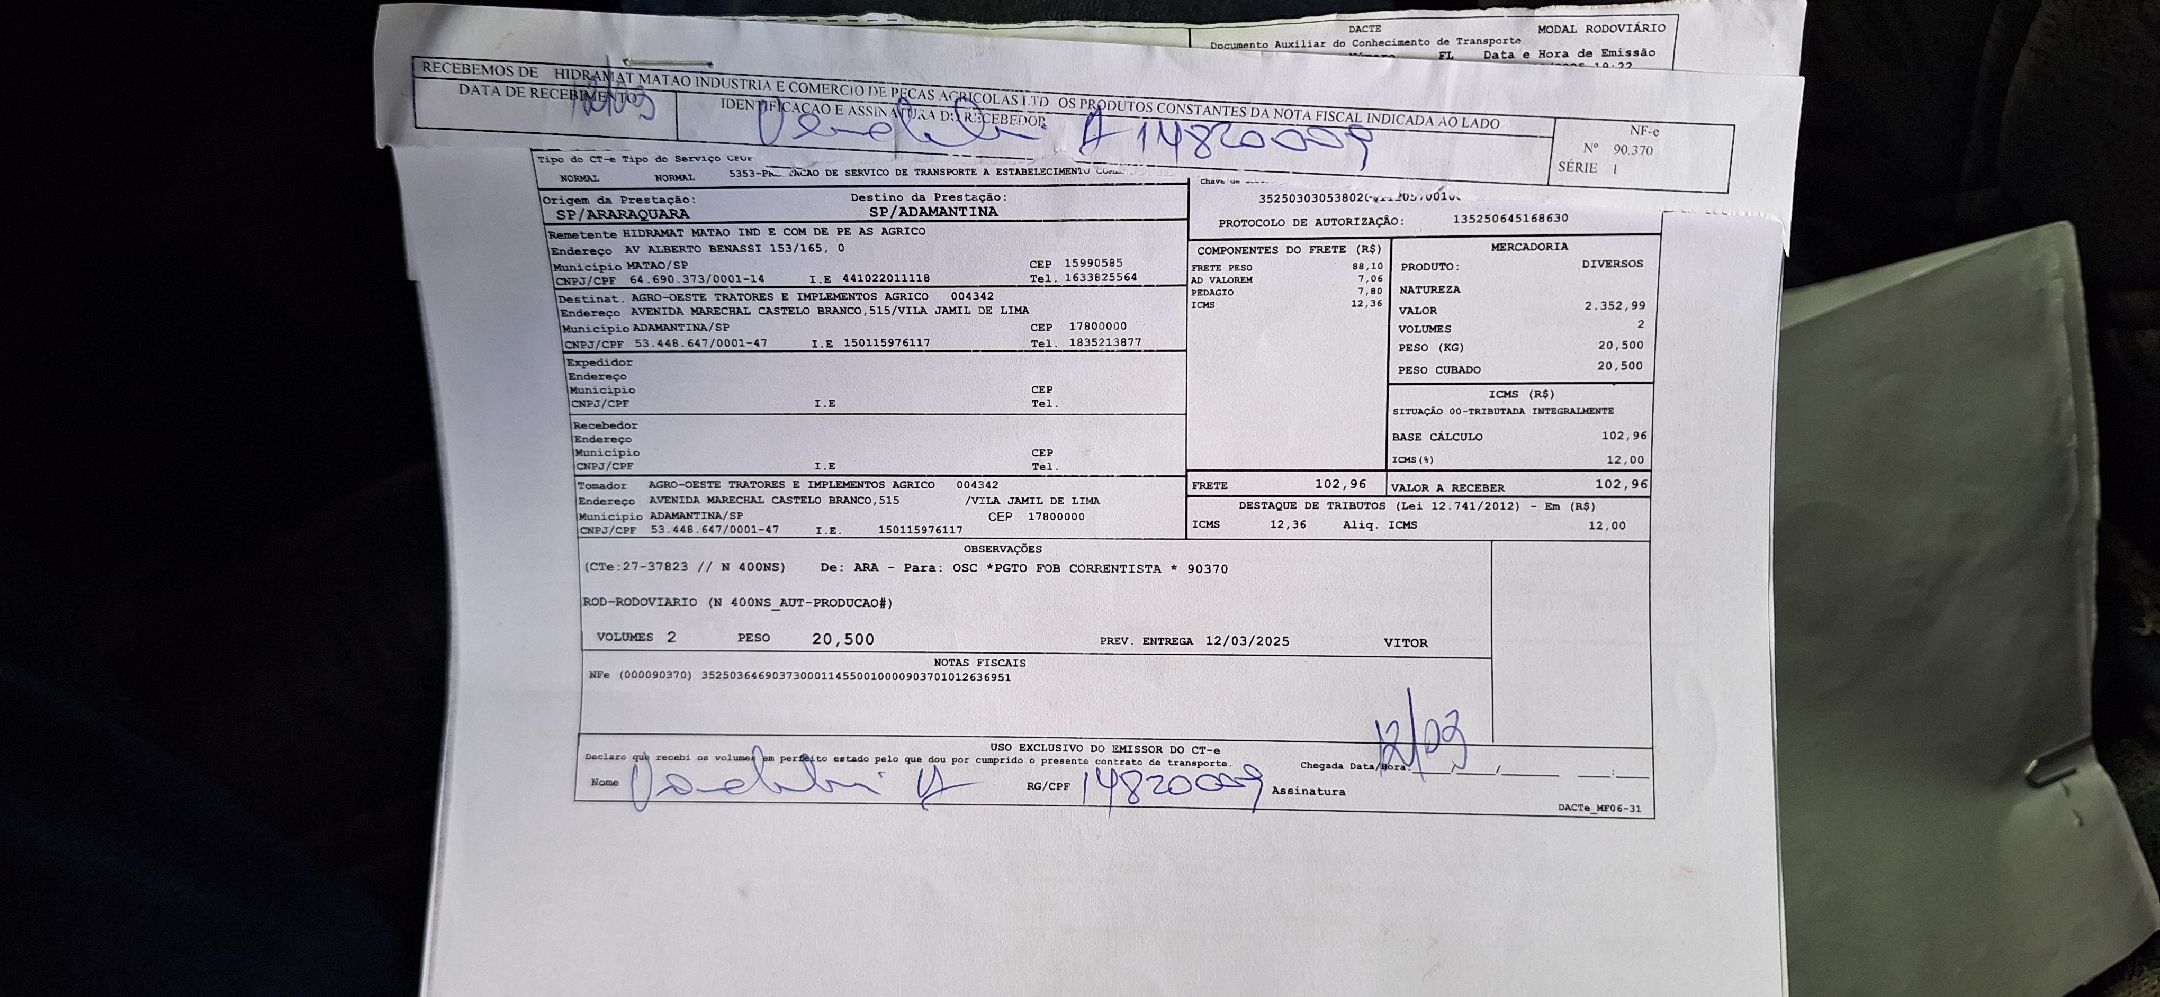 DACTE MODAL RODOVIÁRIO
Documento Auxiliar do Conhecimento de Transporte
FL Data e Hora de Emissão
RECEBEMOS DE HIDRAMAT MATAO INDUSTRIA E COMERCIO DE PECAS AGRICOLAS LTD OS PRODUTOS CONSTANTES DA NOTA FISCAL INDICADA AO LADO
DATA DE RECEBIMENTO IDENTIFICAÇAO E ASSINATURA DO RECEBEDOR
12/03 14820009
NF-e
Nº 90.370
SÉRIE 1
Tipo do CT-e Tipo do Serviço
NORMAL NORMAL 5353- DE SERVICO DE TRANSPORTE A ESTABELECIMENTO
Origem da Prestação: Destino da Prestação:
SP/ARARAQUARA SP/ADAMANTINA
PROTOCOLO DE AUTORIZAÇÃO: 135250645168630
Remetente HIDRAMAT MATAO IND E COM DE PE AS AGRICO
Endereço AV ALBERTO BENASSI 153/165, 0
Município MATAO/SP CEP 15990585
CNPJ/CPF 64.690.373/0001-14 I.E 441022011118 Tel. 1633825564
Destinat. AGRO-OESTE TRATORES E IMPLEMENTOS AGRICO 004342
Endereço AVENIDA MARECHAL CASTELO BRANCO,515/VILA JAMIL DE LIMA
Município ADAMANTINA/SP CEP 17800000
CNPJ/CPF 53.448.647/0001-47 I.E 150115976117 Tel. 1835213877
Expedidor
Endereço
Município CEP
CNPJ/CPF I.E Tel.
Recebedor
Endereço
Município CEP
CNPJ/CPF I.E Tel.
Tomador AGRO-OESTE TRATORES E IMPLEMENTOS AGRICO 004342
Endereço AVENIDA MARECHAL CASTELO BRANCO,515 /VILA JAMIL DE LIMA
Município ADAMANTINA/SP CEP 17800000
CNPJ/CPF 53.448.647/0001-47 I.E. 150115976117
COMPONENTES DO FRETE (R$)
FRETE PESO 88,10
AD VALOREM 7,06
PEDAGIO 7,80
ICMS 12,36
MERCADORIA
PRODUTO: DIVERSOS
NATUREZA
VALOR 2.352,99
VOLUMES 2
PESO (KG) 20,500
PESO CUBADO 20,500
ICMS (R$)
SITUAÇÃO 00-TRIBUTADA INTEGRALMENTE
BASE CÁLCULO 102,96
ICMS(%) 12,00
FRETE 102,96 VALOR A RECEBER 102,96
DESTAQUE DE TRIBUTOS (Lei 12.741/2012) - Em (R$)
ICMS 12,36 Aliq. ICMS 12,00
OBSERVAÇÕES
(CTe:27-37823 // N 400NS) De: ARA - Para: OSC *PGTO FOB CORRENTISTA * 90370
ROD-RODOVIARIO (N 400NS_AUT-PRODUCAO#)
VOLUMES 2 PESO 20,500 PREV. ENTREGA 12/03/2025 VITOR
NOTAS FISCAIS
NFe (000090370) 35250364690373000114550010000903701012636951
12/03
USO EXCLUSIVO DO EMISSOR DO CT-e
Declaro que recebi os volumes em perfeito estado pelo que dou por cumprido o presente contrato de transporte. Chegada Data/Hora:___/___/______ ___:___
Nome RG/CPF 14820009 Assinatura
DACTe_MF06-31